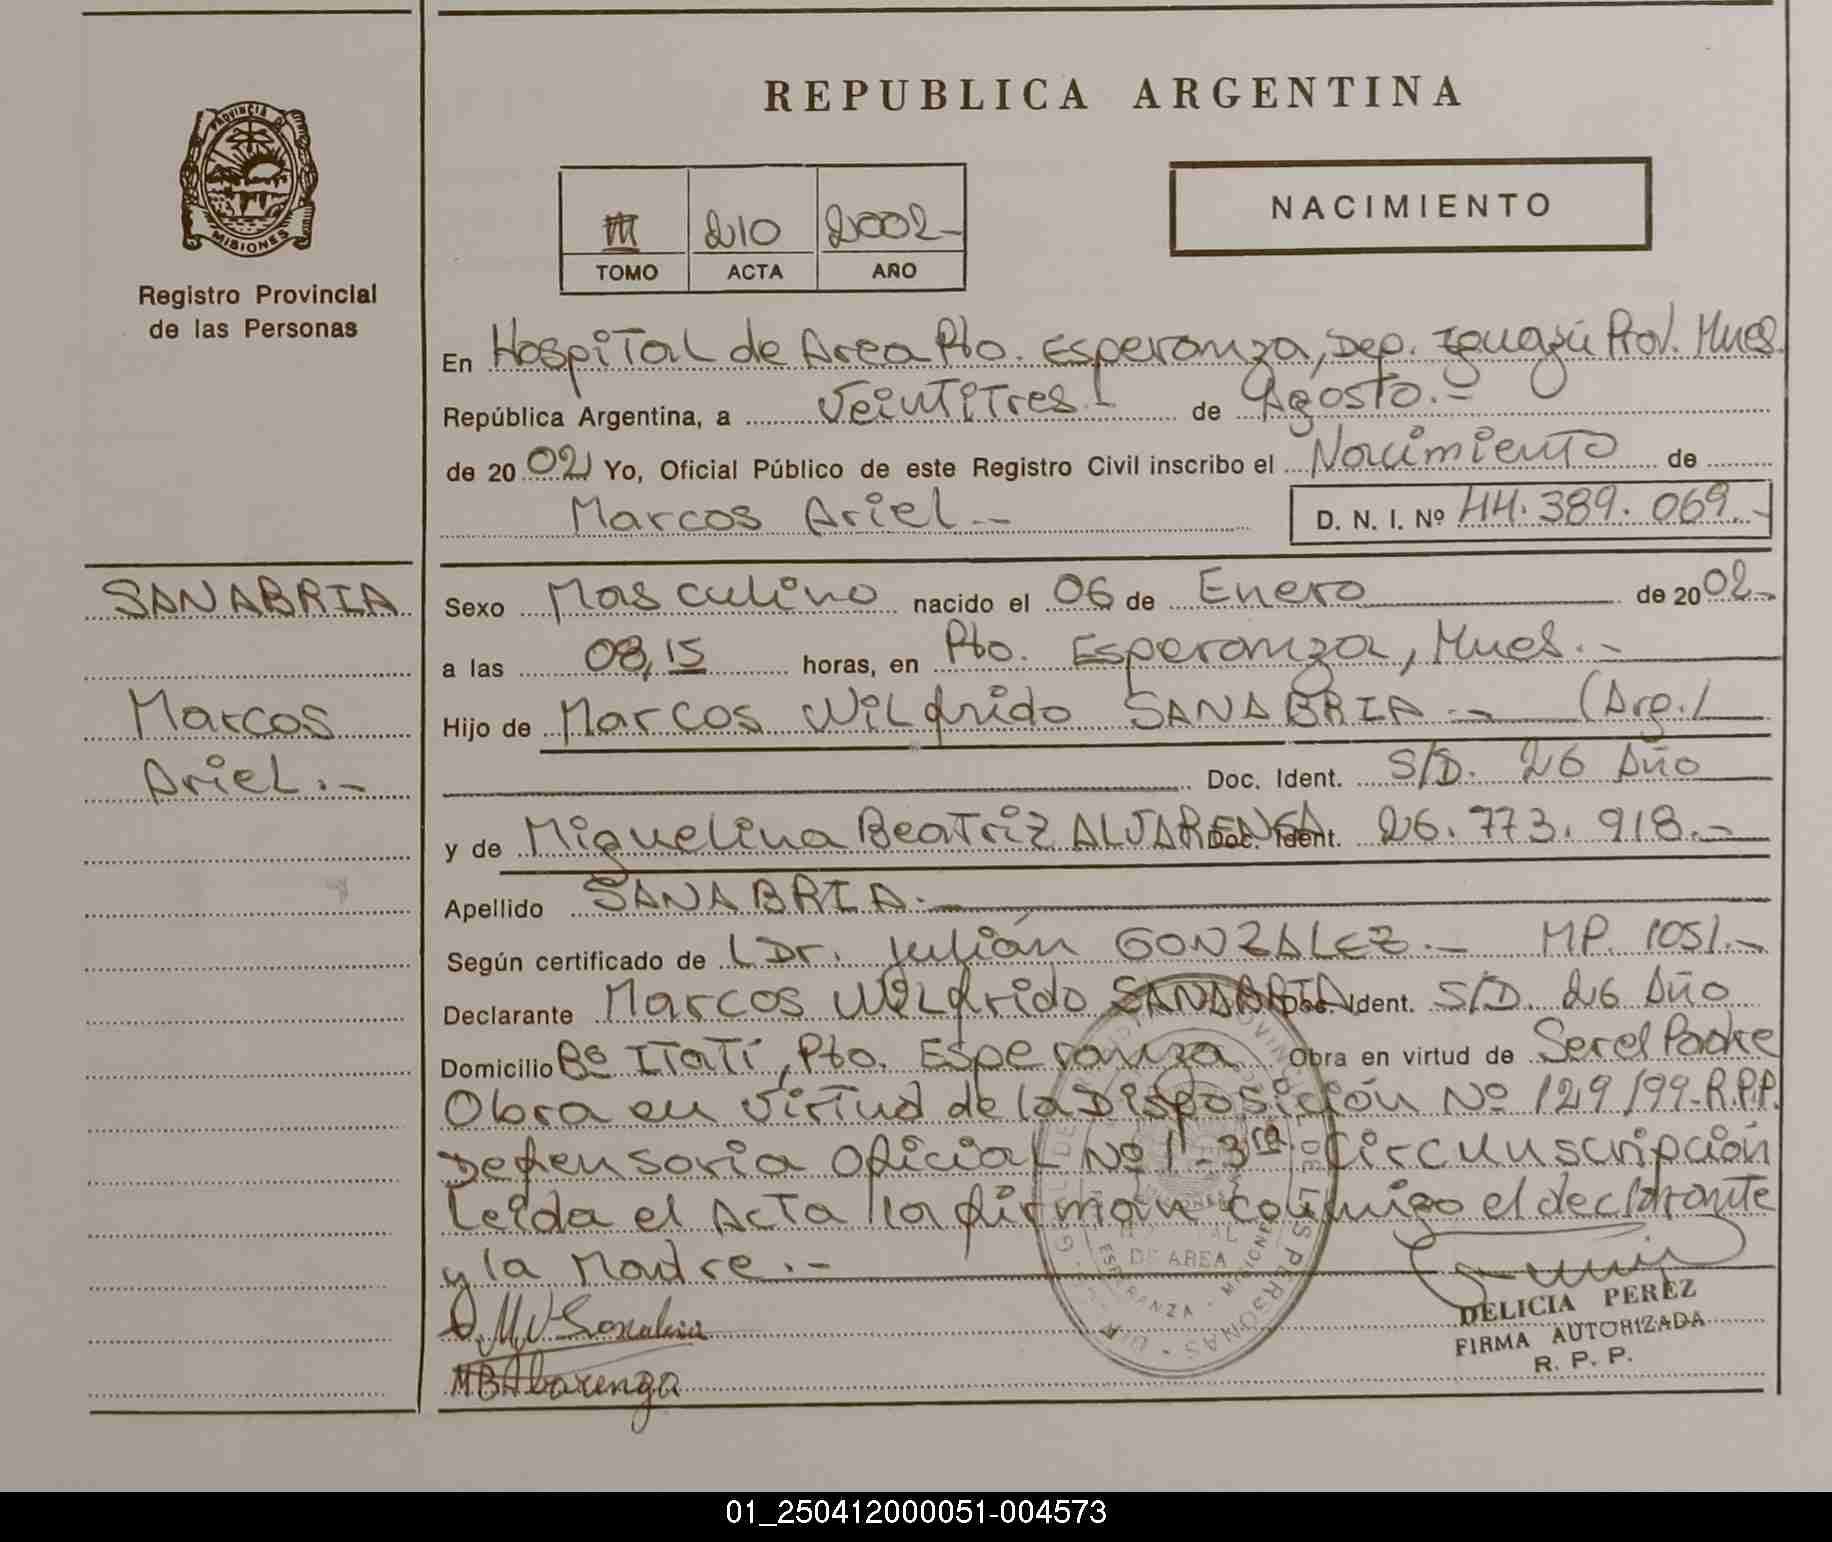 REPUBLICA ARGENTINA
PROVINCIA DE
MISIONES
Registro Provincial
de las Personas
III 210 2002-
TOMO ACTA AÑO
NACIMIENTO
En Hospital de Area Pto. Esperanza, Dep. Iguazú Prov. Mnes.
República Argentina, a Veintitres.- de Agosto.-
de 2002 Yo, Oficial Público de este Registro Civil inscribo el Nacimiento de
Marcos Ariel.-- D. N. I. Nº 44.389.069.-
SANABRIA
Marcos
Ariel.-
Sexo Masculino nacido el 06 de Enero de 2002-
a las 08,15 horas, en Pto. Esperanza, Mnes.-
Hijo de Marcos Wilfrido SANABRIA.- (Arg.)
Doc. Ident. S/D. 26 Año
y de Miguelina Beatriz ALVARENGA Doc. Ident. 26.773.918.-
Apellido SANABRIA.-
Según certificado de Dr. Julián GONZALEZ.- MP. 1051.-
Declarante Marcos Wilfrido SANABRIA Doc. Ident. S/D. 26 Año
Domicilio Bº ITaTí, Pto. Esperanza Obra en virtud de Ser el Padre
Obra en Virtud de la Disposición Nº 129/99-R.P.P.
Defensoria Oficial Nº 1-3ra. Circunscripción
Leida el Acta la firman conmigo el declarante
y la Madre.-
DE AREA
ESPERANZA - MISIONES
M.W. Sanabria
MBAlvarenga
DELICIA PEREZ
FIRMA AUTORIZADA
R. P. P.
01_250412000051-004573